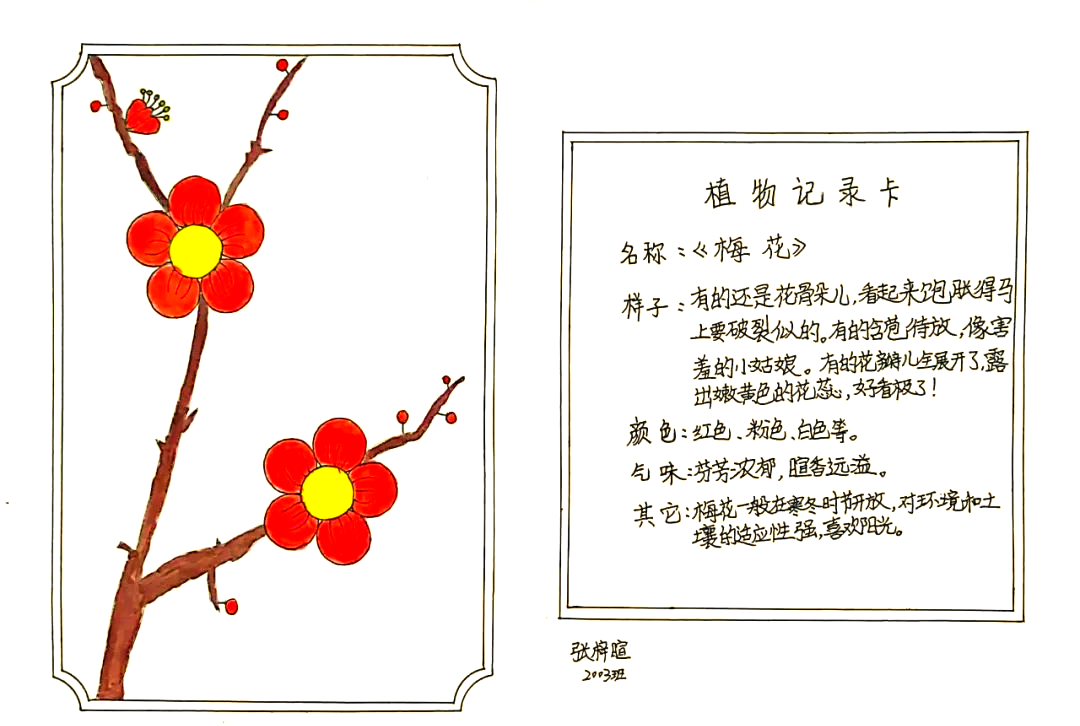 植物记录卡
名称：《梅花》
样子：有的还是花骨朵儿，看起来饱胀得马
上要破裂似的。有的含苞待放，像害
羞的小姑娘。有的花瓣儿全展开了，露
出嫩黄色的花蕊，好看极了！
颜色：红色、粉色、白色等。
气味：芬芳浓郁，暄香远溢。
其它：梅花一般在寒冬时节开放，对环境和土
壤的适应性强，喜欢阳光。
张梓暄
2003班